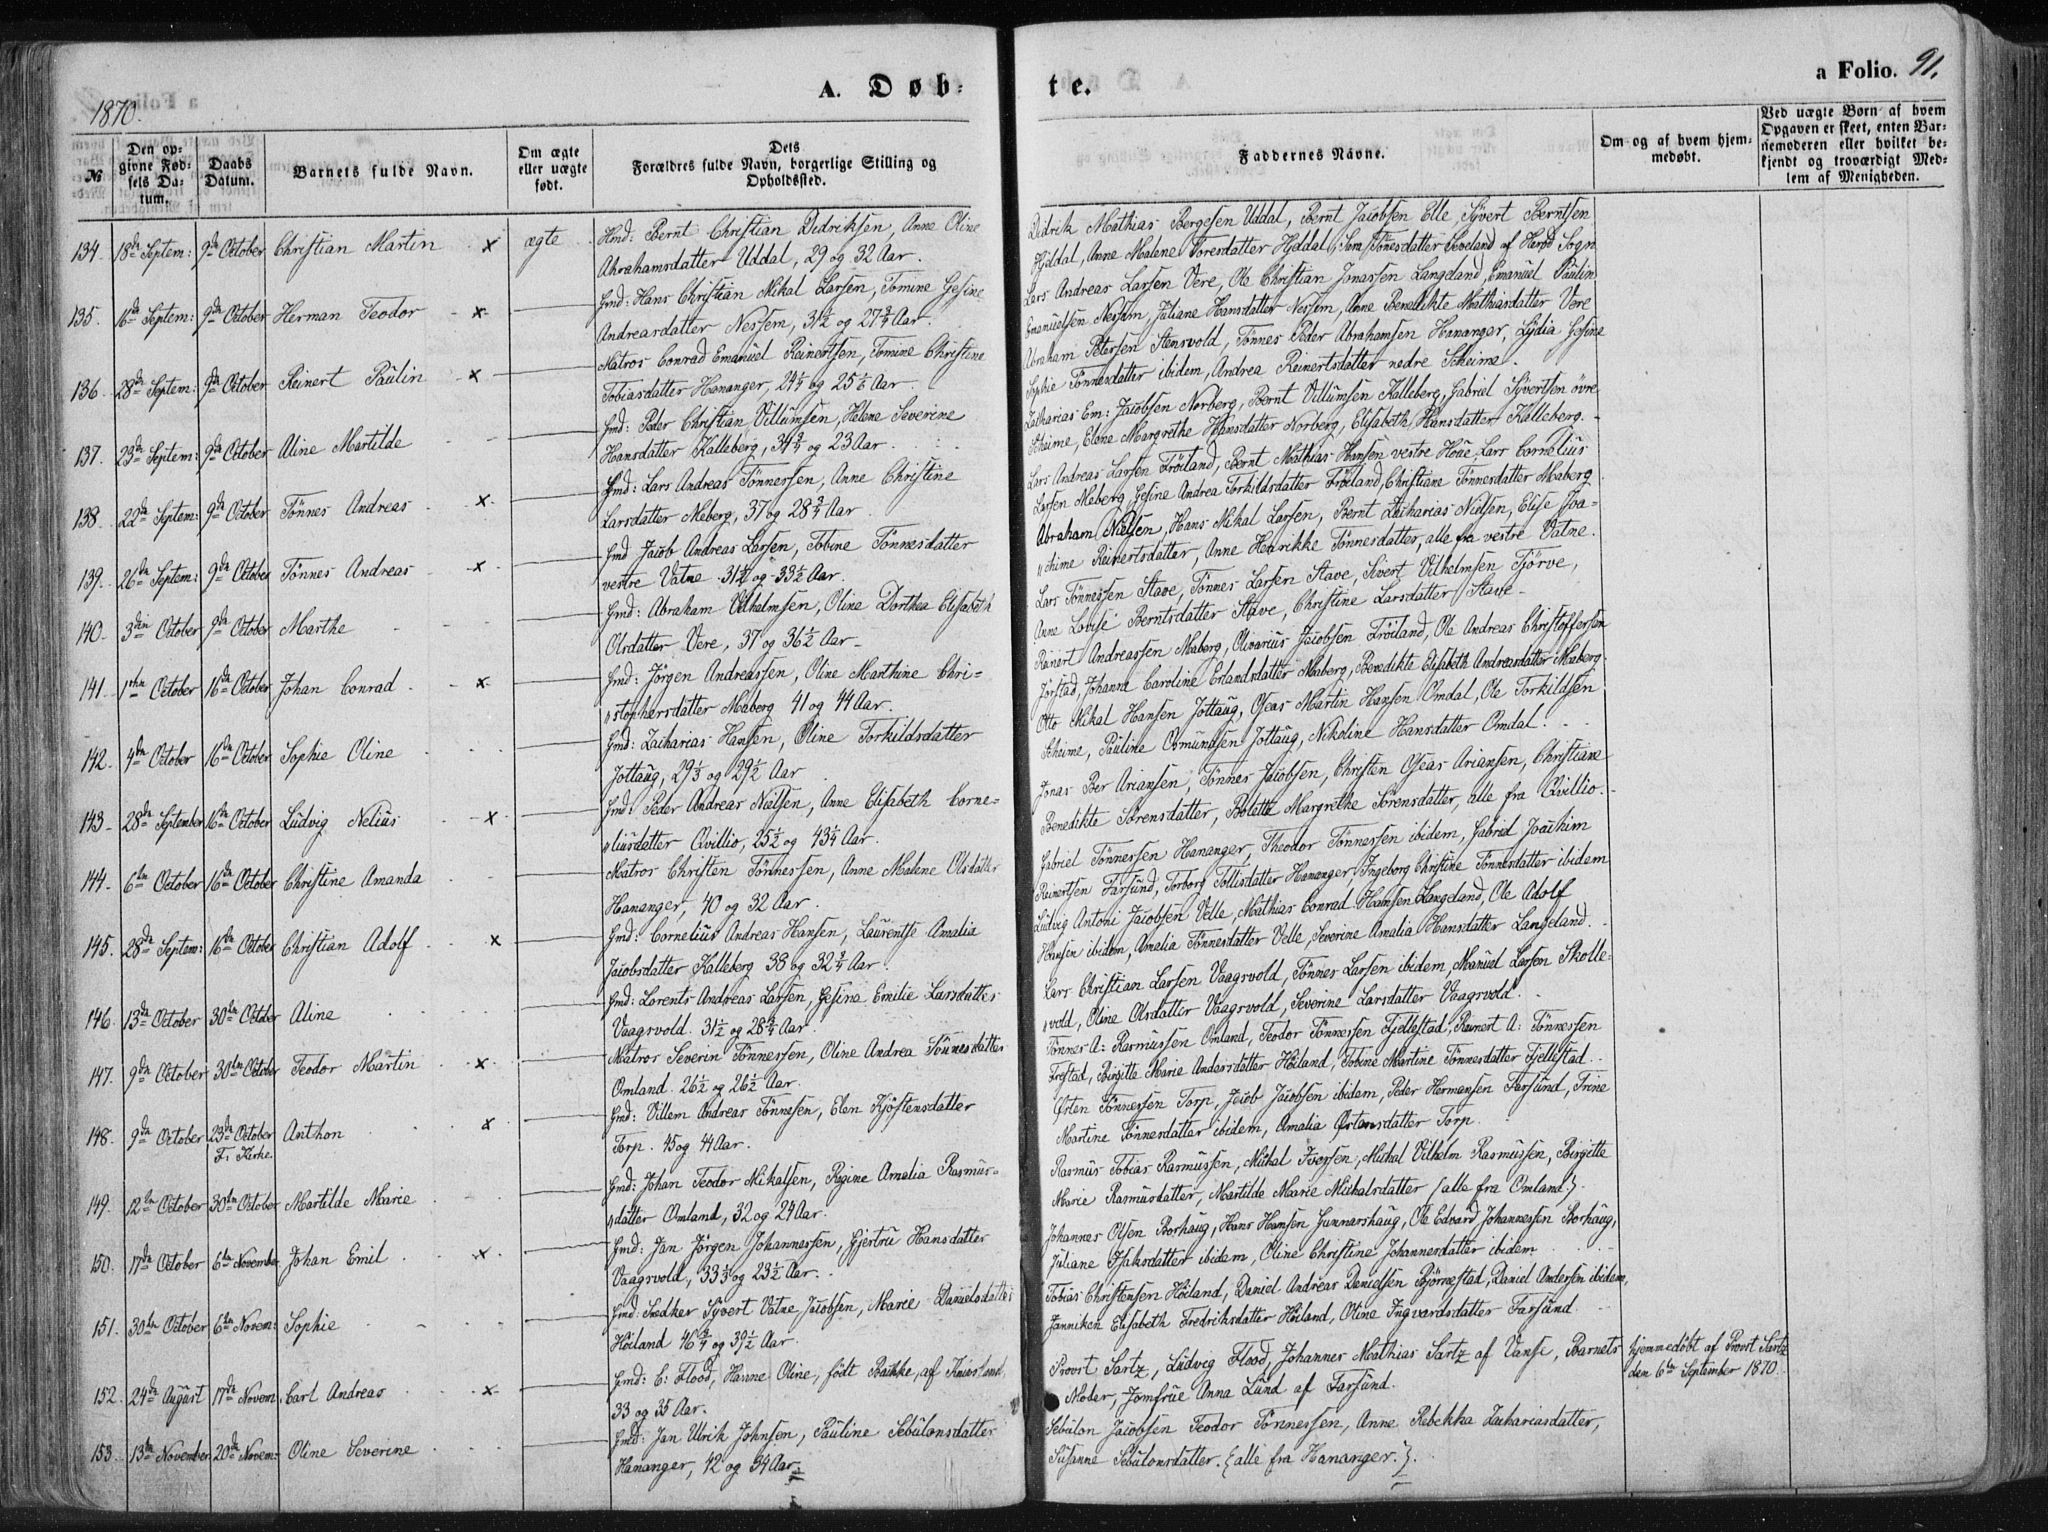 A. Døb-
te.
a Folio. 91.
1870.
№
Den opgivne Fødsels Datum.
Daabs Datum.
Barnets fulde Navn.
Om ægte eller uægte født.
Dets Forældres fulde Navn, borgerlige Stilling og Opholdssted.
Faddernes Navne.
Om og af hvem hjemmedøbt.
Ved uægte Børn af hvem Opgaven er skeet, enten Barnemoderen eller hvilket bekjendt og troværdigt Medlem af Menigheden.
134. 18de Septem: 9de October Christian Martin x ægte Gmd: Bernt Christian Didriksen, Anne Oline
Abrahamsdatter Uddal, 29 og 32 Aar.
Didrik Mathias Bergesen Uddal, Bernt Jacobsen Elle, Syvert Berntsen
Hjddal, Anne Malene Toresdatter Hjddal, Tønnesdatter af Herød Sogn
135. 16de Septem: 9de October Herman Teodor x Gmd: Hans Christian Mikal Larsen, Tomine Gesine
Andreasdatter Nessem, 31½ og 27¾ Aar.
Lars Andreas Larsen Vere, Ole Christian Jonassen Langeland, Emanuel Paulin
Emanuelsen Nessem, Juliane Hansdatter Nessem, Anne Benedikte Mathiasdatter Vere
136. 28de Septem: 9de October Reinert Paulin x Matros Conrad Emanuel Reinertsen, Tomine Christine
Tobiasdatter Hananger, 24¼ og 25⅙ Aar.
Abraham Petersen Stensvold, Tønnes Peder Abrahamsen Hananger, Lydia Gesine
Sophie Tønnesdatter ibidem, Andrea Reinertsdatter nedre Scheime.
137. 23de Septem: 9de October Aline Martilde Gmd: Peder Christian Villumsen, Helene Severine
Hansdatter Kalleberg, 34¾ og 23 Aar.
Zacharias Em: Jacobsen Norberg, Bernt Villumsen Kalleberg, Gabriel Syvertsen øvre
Scheime, Elene Margrethe Hansdatter Norberg, Elisabeth Hansdatter Kalleberg.
138. 22de Septem: 9de October Tønnes Andreas x Gmd: Lars Andreas Tønnessen, Anne Christine
Larsdatter Meberg, 37 og 28¾ Aar.
Lars Andreas Larsen Frøiland, Bernt Mathias Hansen vestre Høue, Lars Cornelius
Larsen Meberg, Gesine Andrea Torkildsdatter Frøiland, Christiane Tønnesdatter Maberg
139. 26de Septem: 9de October Tønnes Andreas x Gmd Jacob Andreas Larsen, Tobine Tønnesdatter
vestre Vatne 31¾ og 33½ Aar.
Abraham Nielsen, Hans Mikal Larsen, Bernt Zacharias Nielsen, Elise Joa-
chime Reinertsdatter, Anne Henrikke Tønnesdatter, alle fra vestre Vatne.
140. 3die October 9de October Marthe Gmd: Abraham Vilhelmsen, Oline Dorthea Elisabeth
Olsdatter Vere, 37 og 36½ Aar.
Lars Tønnessen Stave, Tønnes Larsen Stave, Sivert Vilhelmsen Tjörve,
Anne Lovise Berntsdatter Stave, Christine Larsdatter Stave
141. 1ste October 16de October Johan Conrad x Gmd: Jörgen Andreassen, Oline Marthine Chri-
stophersdatter Maberg 41 og 44 Aar.
Reinert Andreassen Maberg, Olivarius Jacobsen Frøiland, Ole Andreas Christoffersen
Jörstad, Johanna Caroline Erlandsdatter Maberg, Benedikte Elisabeth Andreasdatter Maberg.
142. 4de October 16de October Sophie Oline Gmd: Zacharias Hansen, Oline Torkildsdatter
Jottaug, 29⅓ og 29½ Aar
Otto Mikal Hansen Jottaug, Oseas Martin Hansen Omdal, Ole Torkildsen
Scheime, Pauline Osmundsen Jottaug, Nikoline Hansdatter Omdal.
143. 28de September 16de October Ludvig Nelius x Gmd: Peder Andreas Nielsen, Anne Elisabeth Corne-
liusdatter Qvillio, 25½ og 43¼ Aar.
Jonas Ber Ariansen, Tønnes Jacobsen, Christen Oseas Ariansen, Christiane
Benedikte Sörensdatter, Bolette Margrethe Sörensdatter, alle fra Qvillio.
144. 6te October 16de October Christine Amanda Matros Christen Tønnessen, Anne Malene Olsdatter
Hananger, 40 og 32 Aar.
Gabriel Tønnessen Hananger, Theodor Tønnessen ibidem, Gabriel Joachim
Reinertsen Farsund, Torborg Tollisdatter Hananger, Ingeborg Christine Tønnesdatter ibidem
145. 28de Septem: 16de October Christian Adolf x Gmd: Cornelius Andreas Hansen, Laurentse Amalia
Jacobsdatter Kalleberg 38 og 32¾ Aar.
Ludvig Antoni Jacobsen Velle, Mathias Conrad Hansen Langeland, Ole Adolf
Hansen ibidem, Amalia Tønnesdatter Velle, Severine Amalia Hansdatter Langeland.
146. 13de October 30de October Aline Gmd: Lorents Andreas Larsen, Gesine Emilie Larsdatter
Vaagsvold. 31½ og 28¾ Aar.
Lars Christian Larsen Vaagsvold, Tønnes Larsen ibidem, Manuel Larsen Skolle-
vold, Oline Olsdatter Vaagsvold, Severine Larsdatter Vaagsvold.
147. 9de October 30te October Teodor Martin x Matros Severin Tønnessen, Oline Andrea Tønnesdatter
Omland. 26½ og 26½ Aar.
Tønnes A: Rasmussen Omland, Teodor Tønnessen Fjellestad, Reinert A: Tønnessen
Frestad, Birgitte Marie Andersdatter Høiland, Tobine Martine Tønnesdatter Fjellestad.
148. 9de October 23de October F. Kirke Anthon x Gmd: Villem Andreas Tønnesen, Elen Kjöstensdatter
Torp. 45 og 44 Aar.
Østen Tønnessen Torp, Jacob Jacobsen ibidem, Peder Hermansen Farsund, Trine
Martine Tønnesdatter ibidem, Amalia Østensdatter Torp.
149. 12te October 30te October Martilde Marie Gmd: Johan Teodor Mikalsen, Regine Amalia Rasmus-
datter Omland, 32 og 24 Aar.
Rasmus Tobias Rasmussen, Mikal Iversen, Mikal Vilhelm Rasmussen, Birgitte
Marie Rasmusdatter, Martilde Marie Mikalsdatter (alle fra Omland).
150. 17de October 6te November Johan Emil x Gmd: Jan Jörgen Johannessen, Gjertru Hansdatter
Vaagsvold, 33⅓ og 23½ Aar.
Johannes Olsen Borhaug, Hans Hansen Gunnarshaug, Ole Edvard Johannessen Borhaug,
Juliane Isaksdatter ibidem, Oline Christine Johannesdatter ibidem
151. 30te October 6te Novem: Sophie Gmd: Snedker Syvert Vatne Jacobsen, Marie Danielsdatter
Høiland 46¾ og 39½ Aar.
Tobias Christensen Höiland, Daniel Andreas Danielsen Björnestad, Daniel Andersen ibidem,
Janniken Elisabeth Fredriksdatter Höiland, Oline Ingvardsdatter Farsund
152. 24de August 17de Novem: Carl Andreas x Gmd: E: Flood, Hanne Oline, født Bakke, af
33 og 35 Aar.
Provst Sartz, Ludvig Flood, Johannes Mathias Sartz af Vanse, Barnets
Moder, Jomfrue Anna Lund af Farsund.
hjemmedöbt af Provst Sartz
den 6te September 1870.
153. 13de November 20de Novem: Oline Severine Gmd: Jan Ulrik Johnsen, Pauline Sebulonsdatter
Hananger, 42 og 34 Aar.
Sebulon Jacobsen Teodor Tönnessen, Anne Rebekka Zachariasdatter,
Susanne Sebulonsdatter. {alle fra Hananger.}